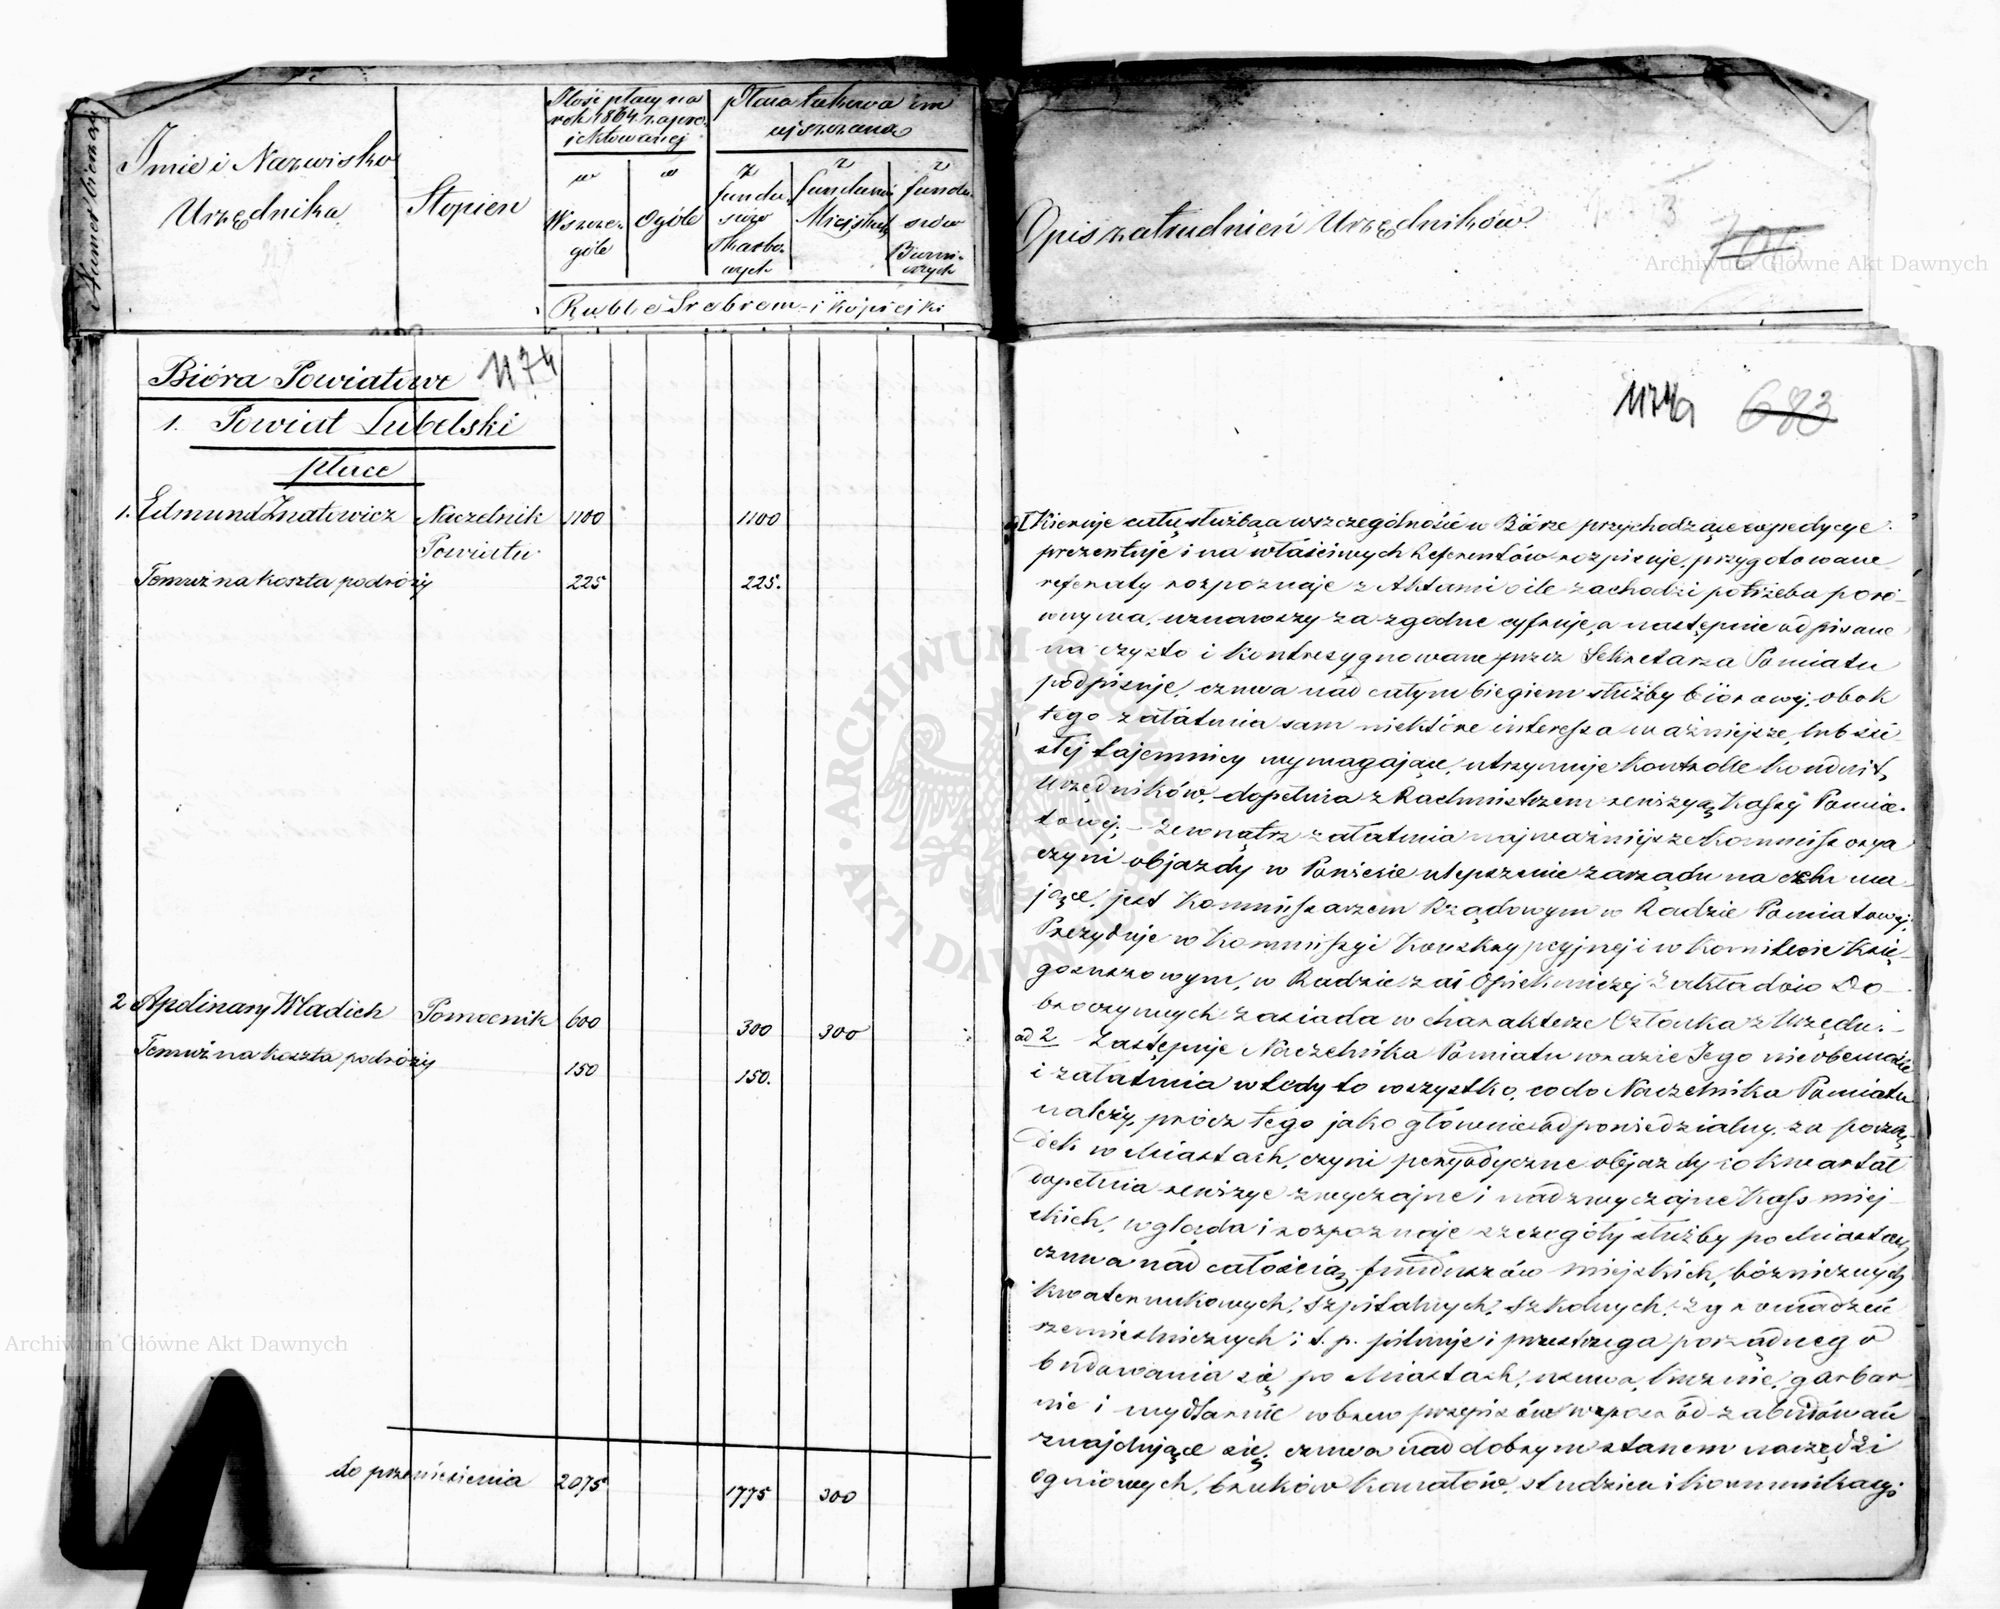 Numer bieżący
Imie i Nazwisko
Urzędnika
Stopień
Ilość płacy na
rok 1864 zapro-
jektowanej
w
Wszcze-
góle
w
Ogóle
płaca takowa im
uiszczana
z
fundu-
szów
Skarbo-
wych
z
funduszów
Miejskich
z
fundu-
szów
Rubli Srebrem i kopiejki
Opis zatrudnień Urzędników
Archiwum Główne Akt Dawnych
Bióra Powiatowe
1174
1. Powiat Lubelski
płace
1. Edmund Ignatowicz Naczelnik 1100 1100
Powiatu
Temuż na koszta podróży 225 225.
2 Apolinary Wladich Pomocnik 600 300 300
Temuż na koszta podróży 150 150.
do przeniesienia 2075 1775 300
683
Kieruje całą służbą a w szczególności w Biórze przychodzące expedycye
prezentuje i na właściwych Referentów rozpisuje, przygotowane
referaty rozpoznaje z Aktami o ile zachodzi potrzeba poró-
wnywa, uznawszy za zgodne cyfruje, a następnie odpisane
na czysto i kontrasygnowane przez Sekretarza Powiatu
podpisuje, czuwa nad całym biegiem służby biórowej, obok
tego załatwia sam niektóre interessa ważniejsze, lub ści-
słej tajemnicy wymagające, utrzymuje kontrolle konduit,
Urzędników, dopełnia z Rachmistrzem rewizyą Kassy Powia-
towej; – zewnątrz załatwia najważniejsze Kommissorya
czyni objazdy w Powiecie ulepszenie zarządu na celu ma-
jące, jest Kommissarzem Rządowym w Radzie Powiatowej,
Prezyduje w Kommissyi Konskrypcyjnej i w Komitecie Księ-
gosuszowym, w Radzie zaś Opiekuńczej Zakładów Do-
broczynnych zasiada w charakterze Członka z Urzędu. –
ad 2 Zastępuje Naczelnika Powiatu w razie Jego nieobecności
i załatwia wtedy to wszystko, co do Naczelnika Powiatu
należy, prócz tego jako głównie odpowiedzialny za porzą-
dek w Miastach, czyni peryodyczne objazdy co kwartał
dopełnia rewizye zwyczajne i nadzwyczajne Kass miej-
skich, wgląda i rozpoznaje szczegóły służby po Miastach,
czuwa nad całością funduszów miejskich, bóżniczych,
kwaterunkowych, szpitalnych, szkolnych, zgromadzeń
rzemieślniczych i t. p. pilnuje i przestrzega porządnego
budowania się po Miastach, usuwa, kuźnie, garbar-
nie i mydlarnie wbrew przepisów w pośród zabudowań
znajdujące się, czuwa nad dobrym stanem narzędzi
ogniowych, bruków kanałów, studzien i kommunikacyi
ARCHIWUM GŁÓWNE AKT DAWNYCH
Archiwum Główne Akt Dawnych